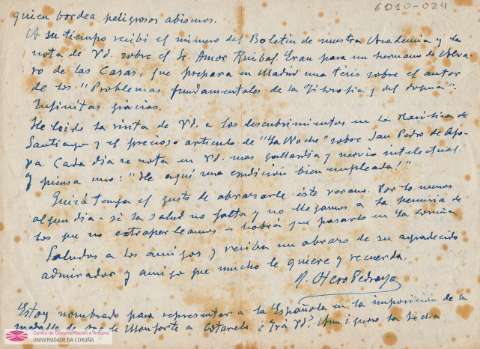 6010-024
quien bordea peligrosos abismos.
A su tiempo recibí el número del Boletín de nuestra Academia y la
nota de Vd. sobre el Sr. Amor Ruibal. Eran para un hermano de Alva-
ro de las Casas, que prepara en Madrid una tesis sobre el autor
de los "Problemas fundamentales de la Filosofía y del dogma".
Infinitas gracias.
He leído la visita de Vd. a los descubrimientos en la Basílica de
Santiago y el precioso artículo de "La Noche" sobre San Pedro de
Cada día se nota en Vd. mas gallardía y nervio intelectual.
y piensa uno: "He aquí una erudición bien empleada!"
Quizá tenga el gusto de abrazarle este verano. Por lo menos
algun día - si la salud no falta y no llegamos a la penuria de
los que no - habrá que pasarlo en la Coruña
Saludos a los amigos y reciba un abrazo de su agradecido
admirador y amigo que mucho le quiere y recuerda.
R. Otero Pedrayo
Estoy nombrado para representar a la Española en la imposición de la
medalla de de Monforte a Cotarelo e irá Vd. Aun ignoro la fecha
Centro de Documentación e Arquivo
UNIVERSIDADE DA CORUÑA